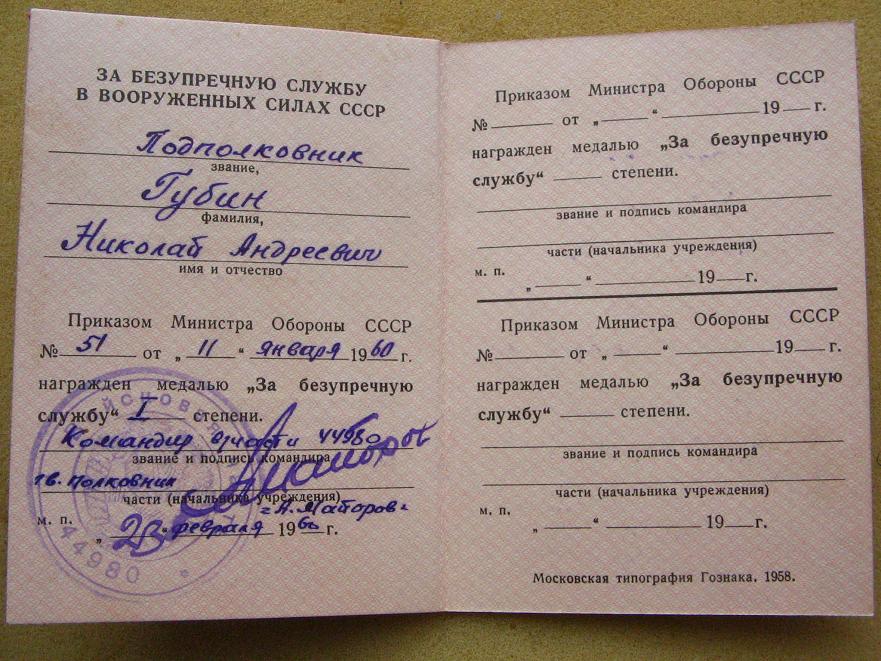 ЗА БЕЗУПРЕЧНУЮ СЛУЖБУ
В ВООРУЖЕННЫХ СИЛАХ СССР
Подполковник
звание,
Губин
фамилия,
Николай Андреевич
имя и отчество
Приказом Министра Обороны СССР
№ 51 от „ 11 “ января 1960 г.
награжден медалью „За безупречную
службу“ I степени.
Командир в/части 44980
звание и подпись командира
гв. полковник
части (начальника учреждения)
=А. Майоров=
м. п.
„ 23 “ февраля 1960 г.
44980
Приказом Министра Обороны СССР
№ от „ “ 19 г.
награжден медалью „За безупречную
службу“ степени.
звание и подпись командира
части (начальника учреждения)
м. п.
„ “ 19 г.
Приказом Министра Обороны СССР
№ от „ “ 19 г.
награжден медалью „За безупречную
службу“ степени.
звание и подпись командира
части (начальника учреждения)
м. п.
„ “ 19 г.
Московская типография Гознака. 1958.